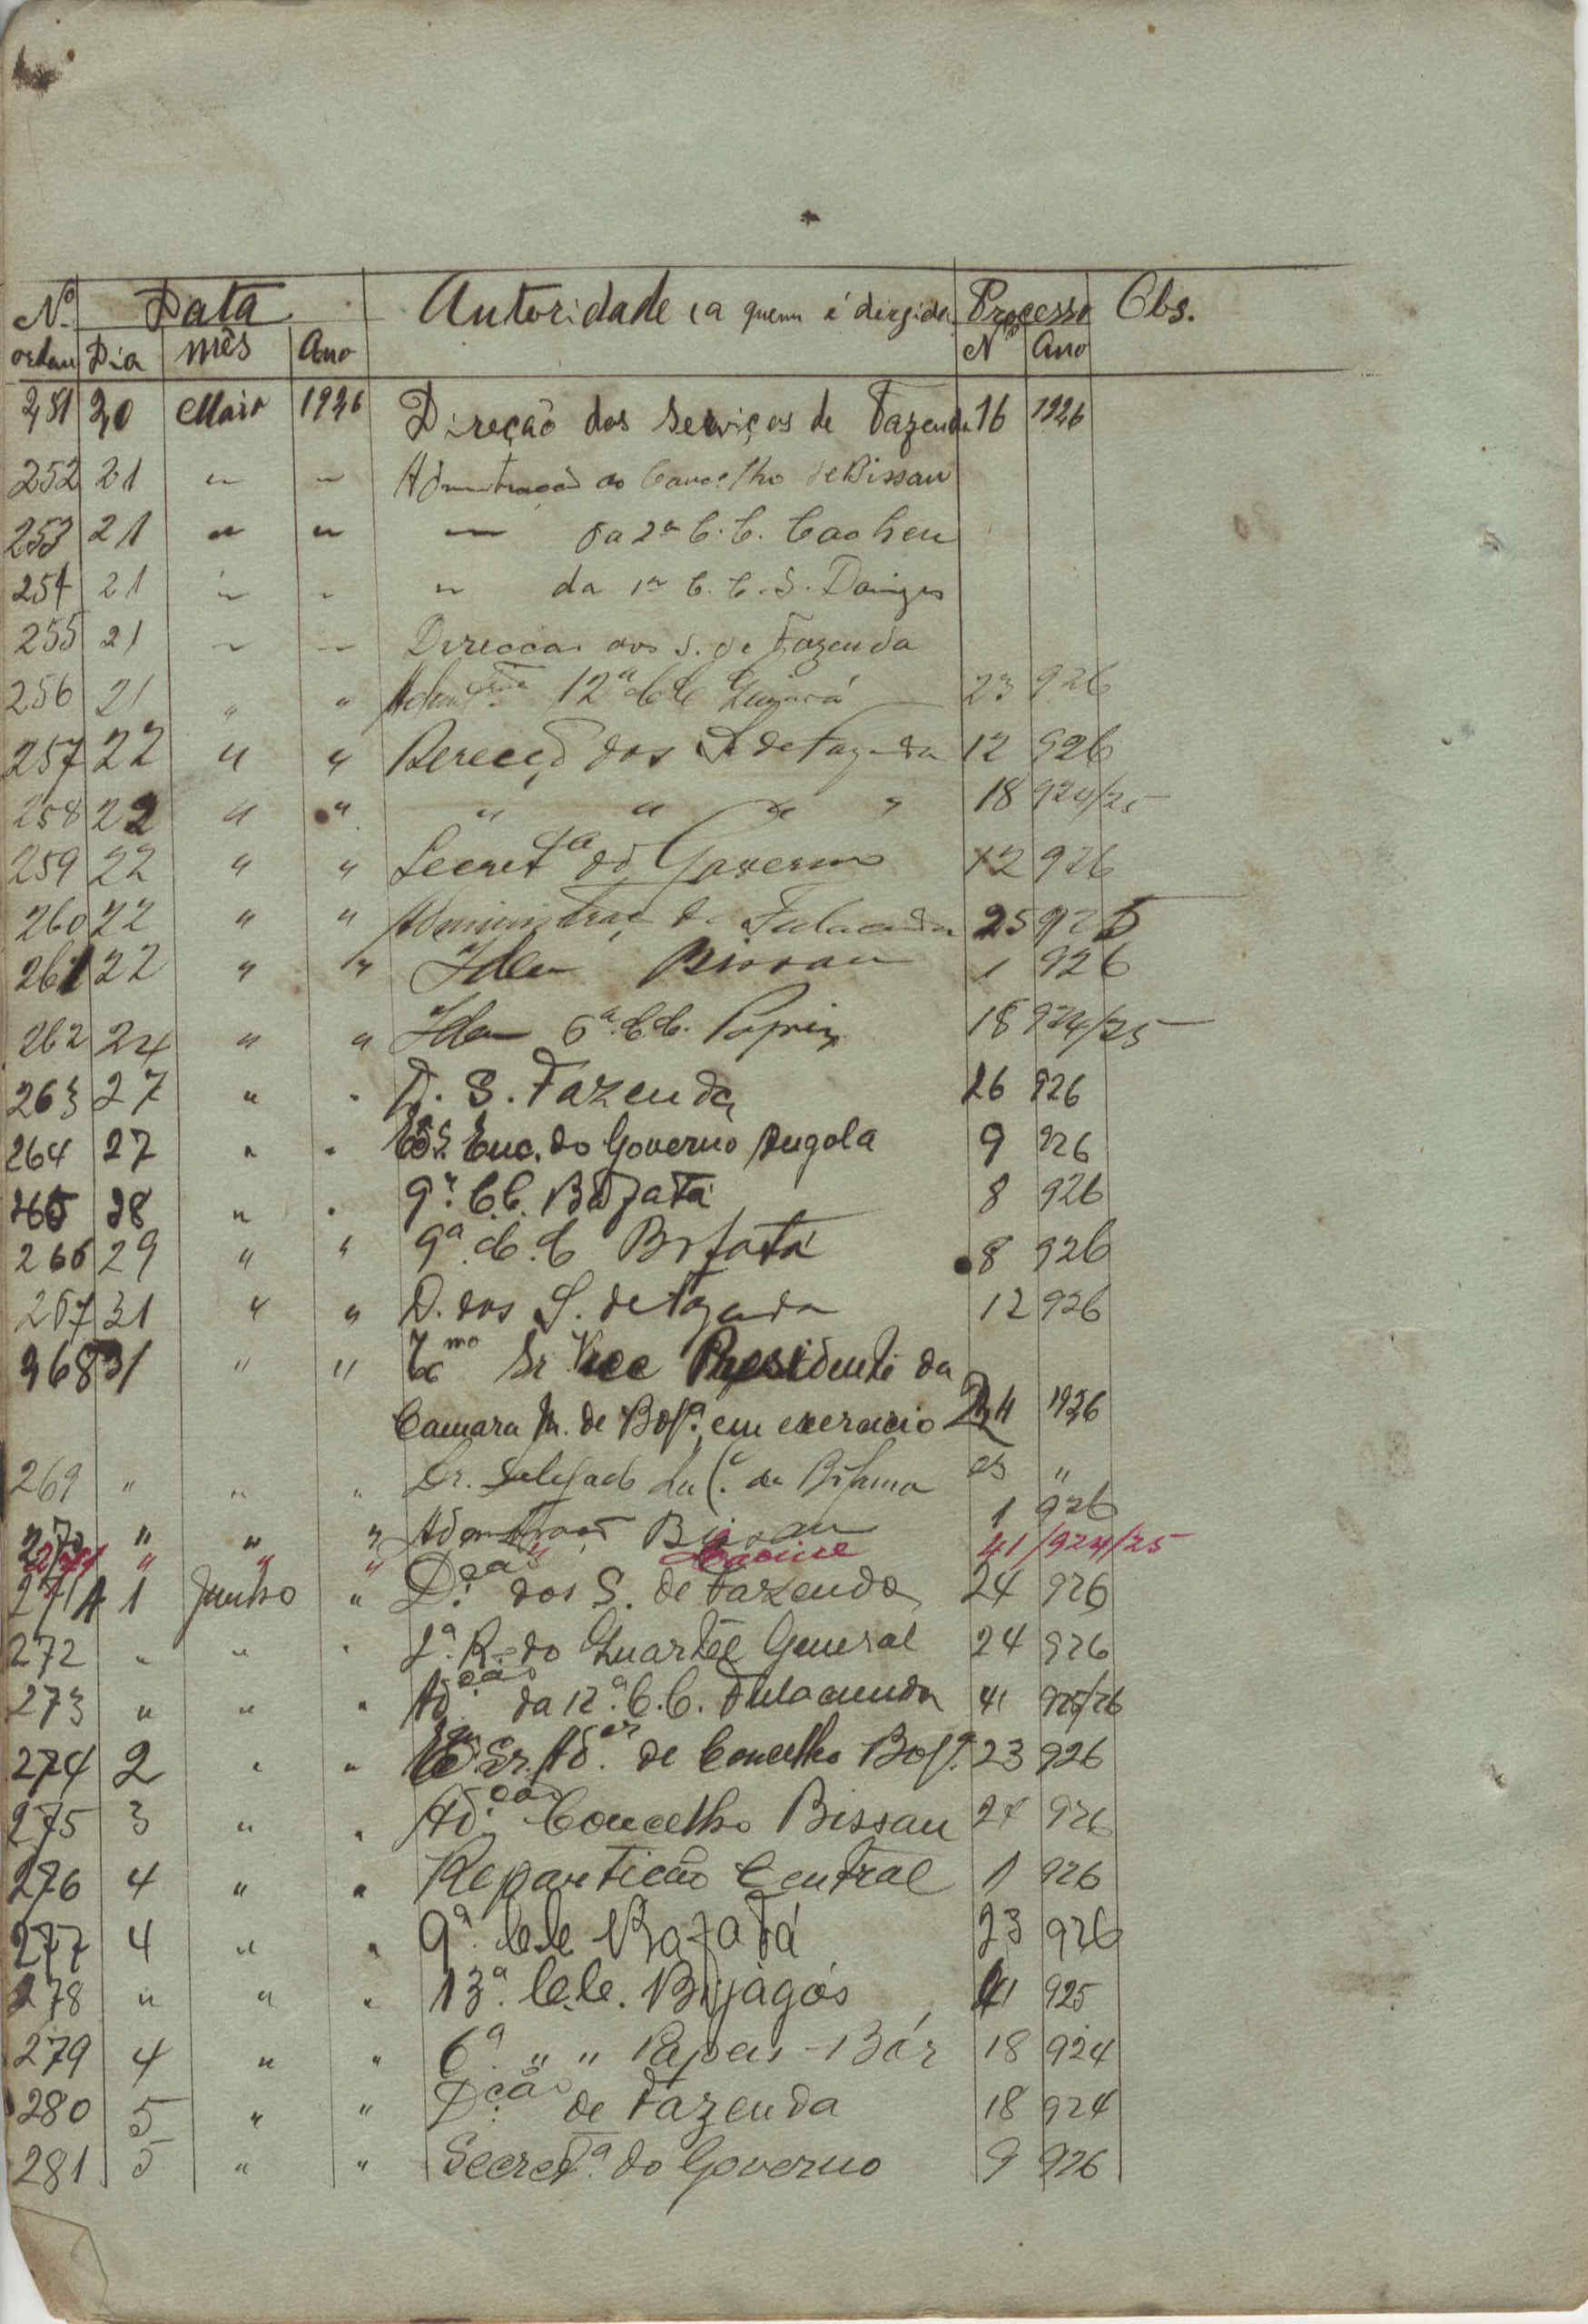 Nº Data Autoridade (a quem é dirigida Processo Obs.
ordem Dia Mês Ano Nº Ano
251 20 Maio 1926 Direção dos Serviços de Fazenda 16 1926
252 21 " " do Concelho de Bissau
253 21 " " " da 2ª C.C. Cacheu
254 21 " " " da 1ª C.C. S. Domingos
255 21 " " Direccao dos S. de Fazenda
256 21 " " 12ª C.C. 23 926
257 22 " " dos S. de Fazenda 12 926
258 22 " " " " " " 18 924/25
259 22 " " Secretª do Governo 12 926
260 22 " " Administraç de Fulacunda 25 925
261 22 " " Idem Bissau 1 926
262 24 " " Idem 6ª C.C. 18 924/25
263 27 " " D. S. Fazenda 26 926
264 27 " " Enc. do Governo Angola 9 926
265 28 " " 9ª C.C. Bafatá 8 926
266 29 " " 9ª C.C Bafatá 8 926
267 31 " " D. dos S. de Fazenda 12 926
268 31 " " Exmo Sr Vice Presidente da
Camara M. de Bolª em exercicio 24 1926
269 " " " de Bolama 23 "
270 " " " Bissau 1 926
271 " " " " Cacine 41 /924/25
271 A 1 Junho " Dção dos S. de Fazenda 24 926
272 " " " R. do Quartel General 24 926
273 " " " Adção da 12ª C.C. Fulacunda 41 925/26
274 2 " " Sr. Ador de Concelho Bolª 23 926
275 3 " " Adção Concelho Bissau 24 926
276 4 " " Repartição Central 1 926
277 4 " " 9ª C.C Bafatá 23 926
278 " " " 13ª C.C. Bijagós 41 925
279 4 " " 6ª " " Papeis - Bór 18 924
280 5 " " Dção de Fazenda 18 924
281 5 " " Secretª do Governo 9 926